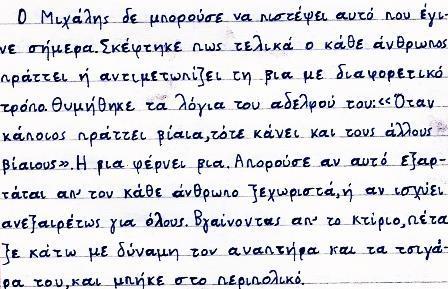 Ο Μιχάλης δε μπορούσε να πιστέψει αυτό που έγι-
νε σήμερα. Σκέφτηκε πως τελικά ο κάθε άνθρωπος
πράττει ή αντιμετωπίζει τη βια με διαφορετικό
τρόπο. Θυμήθηκε τα λόγια του αδελφού του:«Όταν
κάποιος πράττει βίαια, τότε κάνει και τους άλλους
βίαιους». Η βια φέρνει βια. Απορούσε αν αυτό εξαρ-
τάται απ' τον κάθε άνθρωπο ξεχωριστά, ή αν ισχύει
ανεξαιρέτως για όλους. Βγαίνοντας απ' το κτίριο, πέτα
ξε κάτω με δύναμη τον αναπτήρα και τα τσιγά-
ρα του, και μπήκε στο περιπολικό.